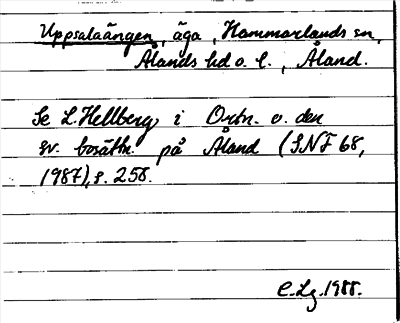 Uppsalaängen, äga, Hammarlands sn,
Ålands hd o. l., Åland.
Se L. Hellberg i Ortn. o. den
sv. bosättn. på Åland (SNF 68,
1987), s. 258.
C. Lg. 1988.